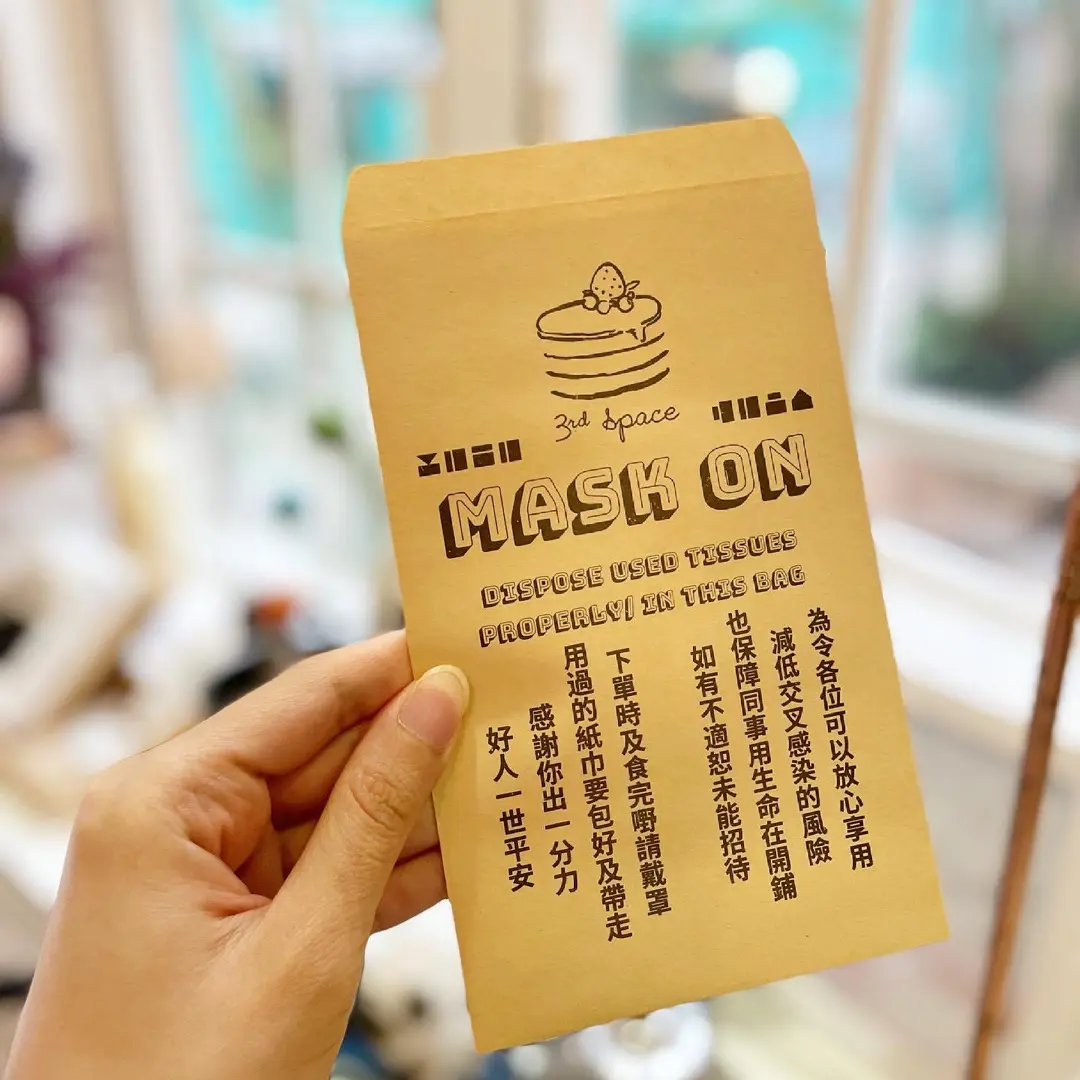 3rd Space
MASK ON
DISPOSE USED TISSUES
PROPERLY/ IN THIS BAG
為令各位可以放心享用
減低交叉感染的風險
也保障同事用生命在開鋪
如有不適恕未能招待
下單時及食完嘢請戴罩
用過的紙巾要包好及帶走
感謝你出一分力
好人一世平安